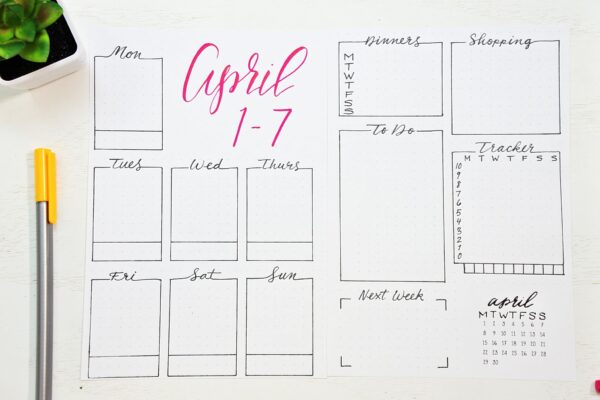 Mon
April
1-7
Tues
Wed
Thurs
Fri
Sat
Sun
Dinners
M
T
W
T
F
S
S
Shopping
To Do
Tracker
M T W T F S S
10
9
8
7
6
5
4
3
2
1
0
Next Week
april
M T W T F S S
1 2 3 4 5 6 7
8 9 10 11 12 13 14
15 16 17 18 19 20 21
22 23 24 25 26 27 28
29 30